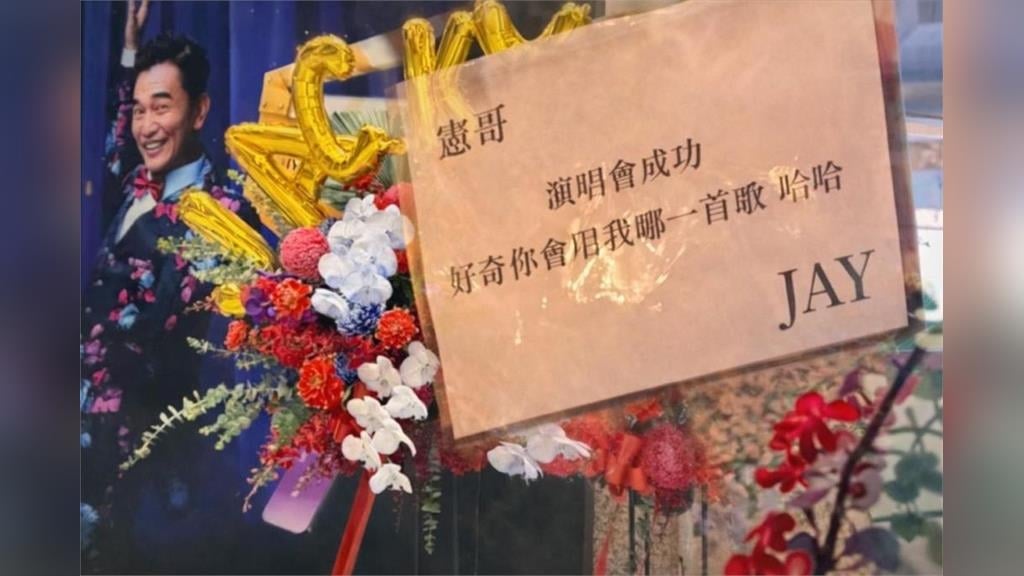 憲哥
演唱會成功
好奇你會用我哪一首歌 哈哈
JAY